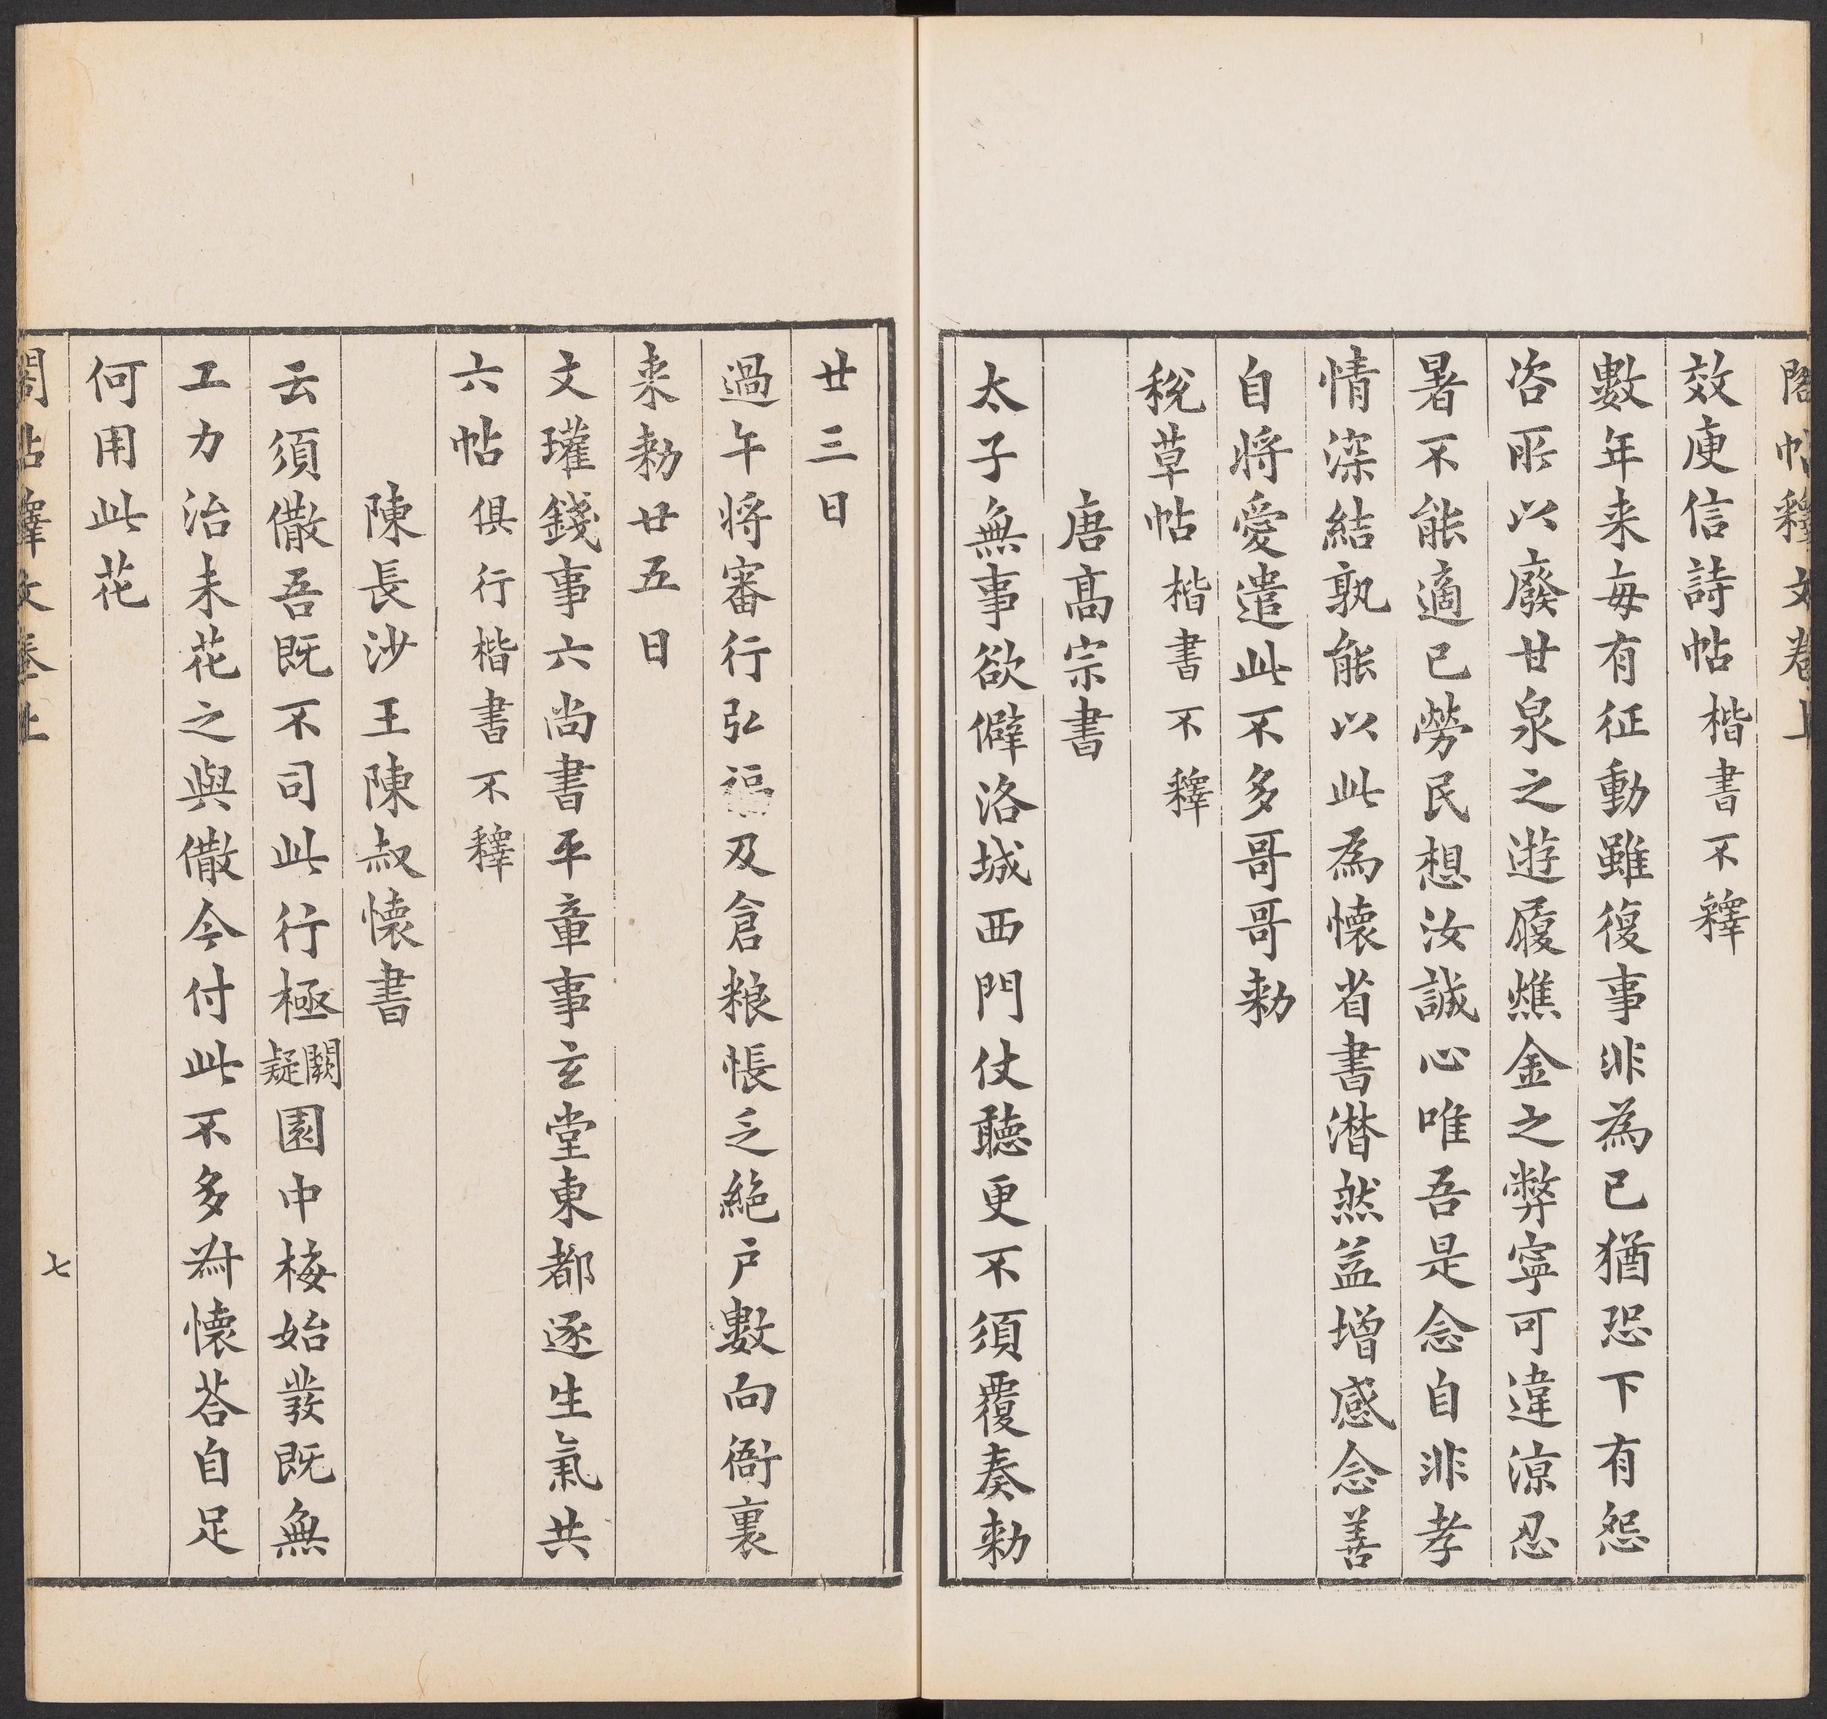 閣帖釋文卷上
效庾信詩帖楷書不釋
數年来每有征動雖復事非為已猶恐下有怨
咨所以廢甘泉之遊履燋金之弊寧可違涼忍
暑不能適已勞民想汝誠心唯吾是念自非孝
情深結孰能以此為懷省書潸然益增感念善
自將愛遣此不多哥哥勑
稅草帖楷書不釋
唐髙宗書
太子無事欲僻洛城西門仗聽更不須覆奏勑
廿三日
過午將審行弘福及倉粮帳乏絶户數向衙裏
来勑廿五日
文瓘錢事六尚書平章事玄堂東都逐生氣共
六帖俱行楷書不釋
陳長沙王陳叔懐書
云須儆吾既不司此行極闕疑園中梅始發既無
工力治未花之與儆今付此不多耐懐荅自足
何用此花
閣帖釋文卷上
七